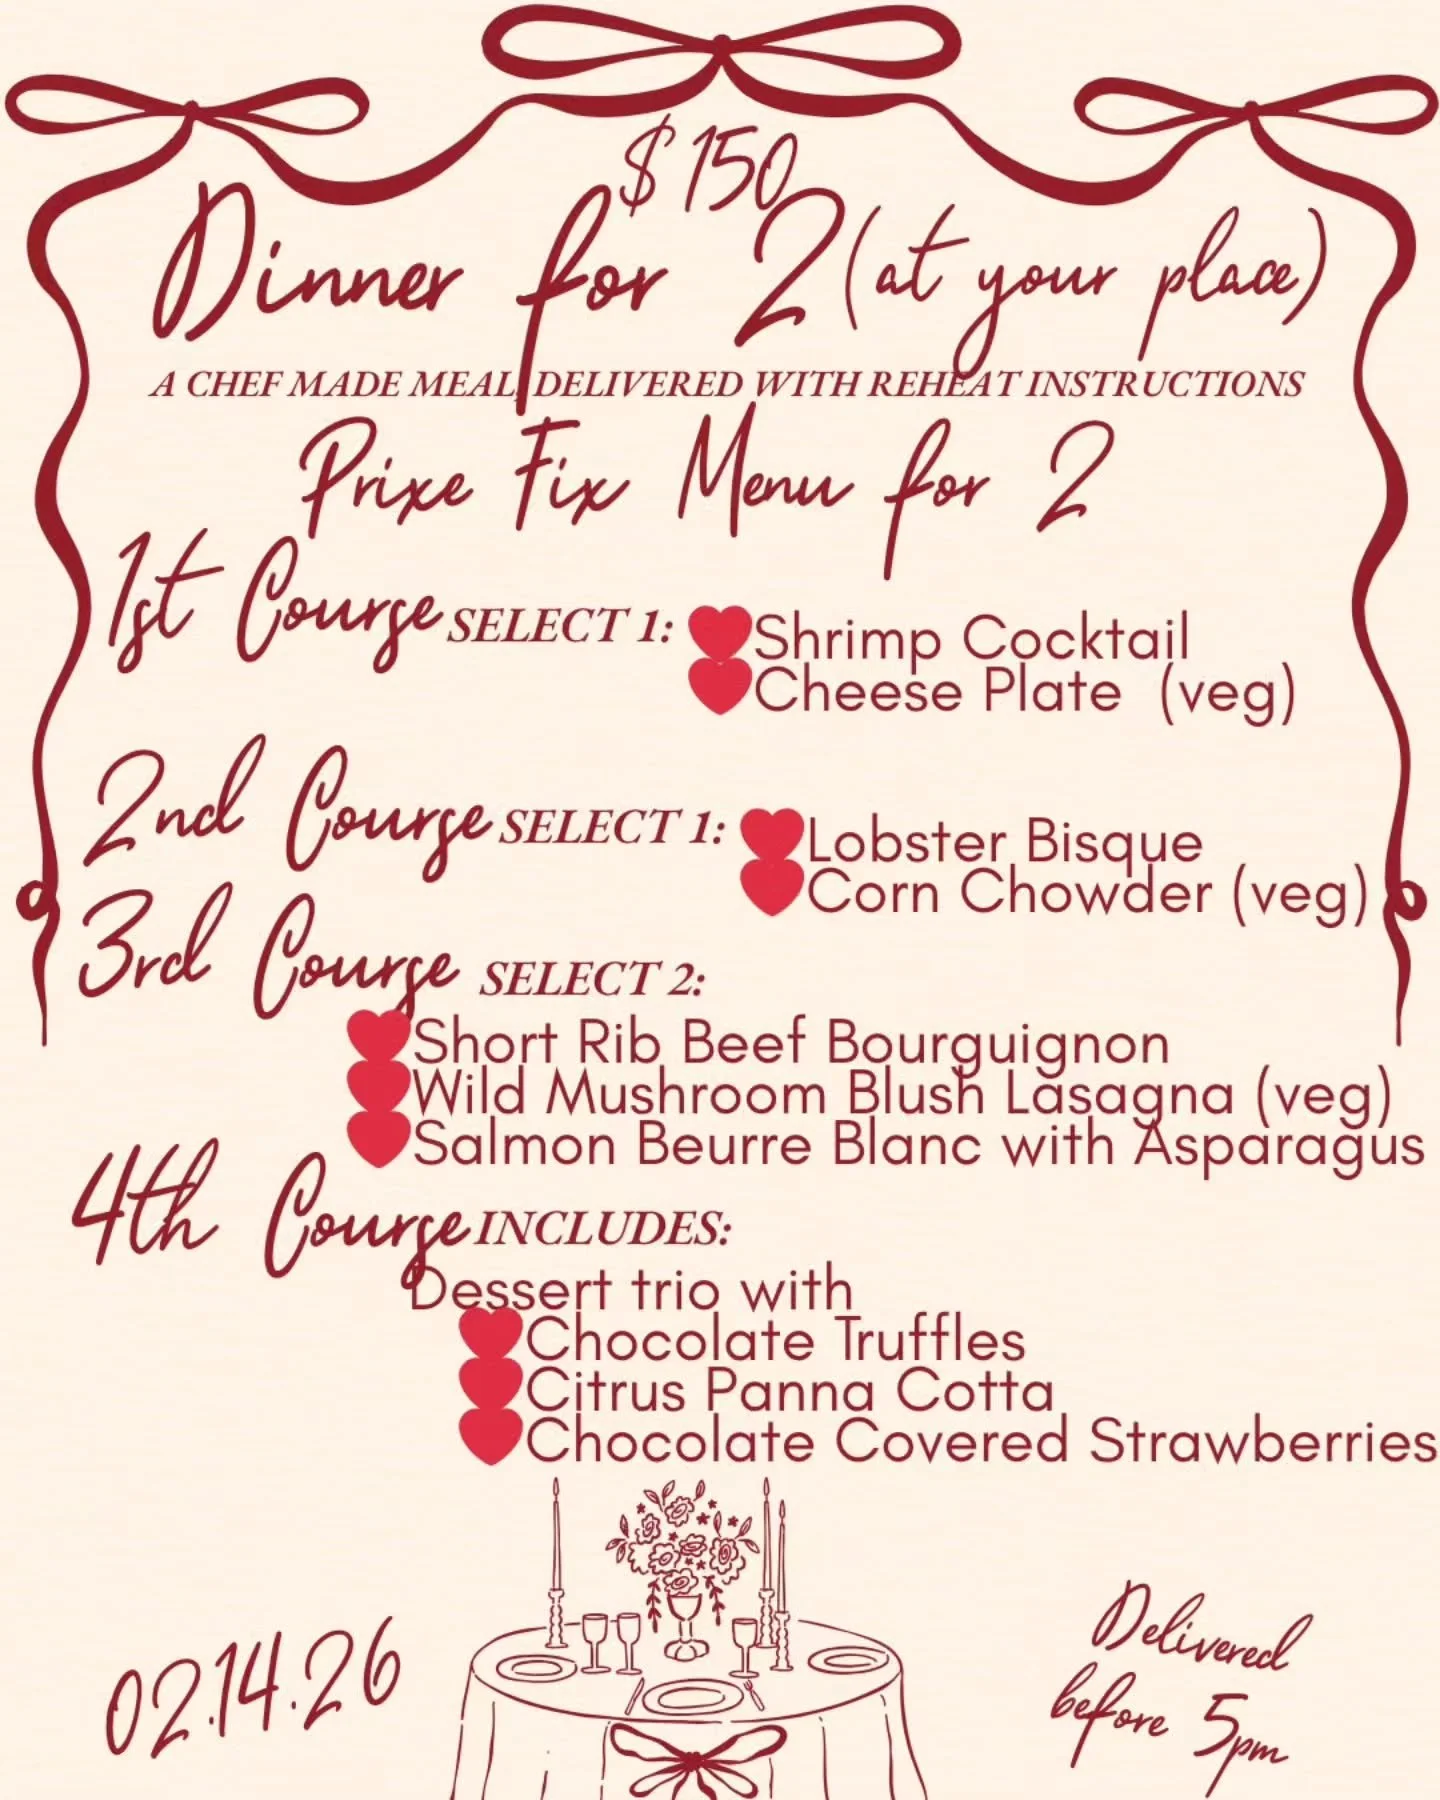 $150
Dinner for 2 (at your place)
A CHEF MADE MEAL, DELIVERED WITH REHEAT INSTRUCTIONS
Prixe Fix Menu for 2
1st Course SELECT 1: Shrimp Cocktail
Cheese Plate (veg)
2nd Course SELECT 1: Lobster Bisque
Corn Chowder (veg)
3rd Course SELECT 2:
Short Rib Beef Bourguignon
Wild Mushroom Blush Lasagna (veg)
Salmon Beurre Blanc with Asparagus
4th Course INCLUDES:
Dessert trio with
Chocolate Truffles
Citrus Panna Cotta
Chocolate Covered Strawberries
02.14.26
Delivered
before 5pm